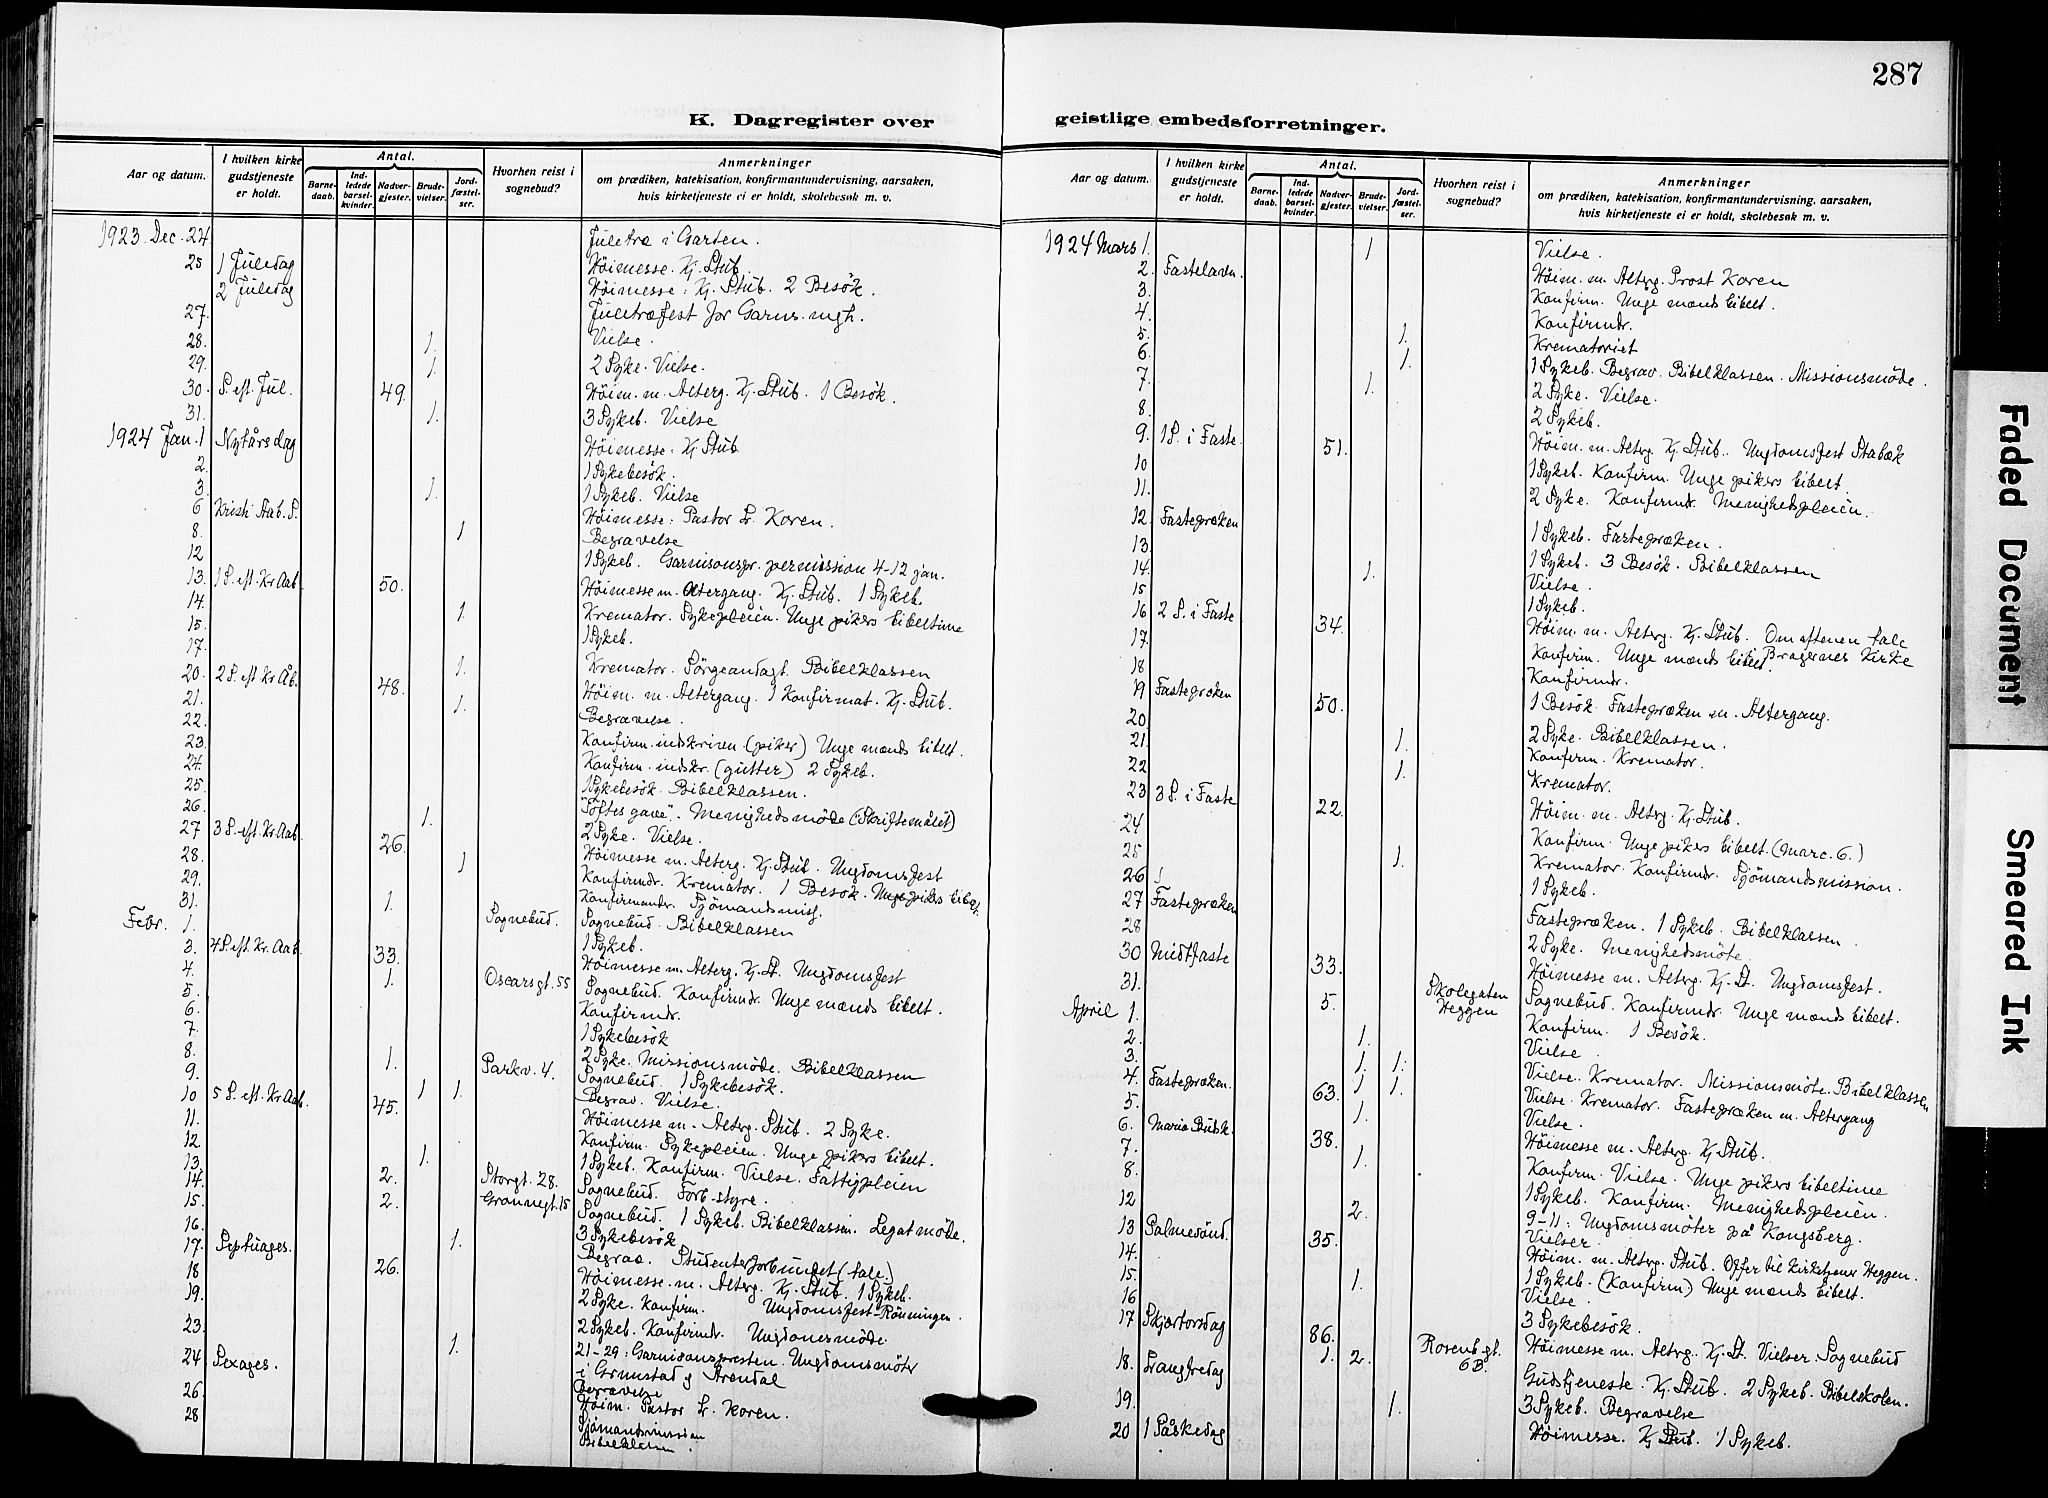 287
K. Dagregister over
geistlige embedsforretninger.
Aar og datum.
I hvilken kirke gudstjeneste er holdt.
Antal.
Barne-daab.
Ind-ledede barsel-kvinder.
Nadver-gjester.
Brude-vielser.
Jord-fæstel-ser.
Hvorhen reist i sognebud?
Anmerkninger
om prædiken, katekisation, konfirmantundervisning, aarsaken,
hvis kirketjeneste ei er holdt, skolebesøk m. v.
1923. Dec. 24 Juletræ i Garten.
25 1 Juledag Höimesse. Kj. Stub.
2 Juledag Höimesse: Kj. Stub. 2 Besök.
27. Juletræfest for Garns. mgh.
28. 1. Vielse.
29. 1. 2 Syke. Vielse.
30. S. eft. Jul. 49. Höim. m. Alterg. Kj. Stub. 1 Besök.
31. 1. 3 Sykeb. Vielse
1924 Jan. 1 Nytårsdag Höimesse: Kj Stub
2. 1 Sykebesök.
3. 1. 1 Sykeb. Vielse
6 Kristi Aab. S. Höimesse: Pastor Dr. Koren.
8. 1 Begravelse
12 1 Sykeb. Garnisonspr. permission 4-12 jan.
13. 1 S. eft. Kr Aab. 50. Höimesse m. Altergang. Kj. Stub. 1 Sykeb.
14. 1. Kremator. Sykepleien. Unge pikers bibeltime
15. 1 Sykeb.
17. 1. Kremator. Sörgeandagt. Bibelklassen
20. 2 S. eft Kr Åb. 48. Höim. m. Altergang. 1 Konfirmat. Kj. Stub.
21. 1. Begravelse.
22. Konfirm. indskriven (piker) Unge mænds bibelt.
23. Konfirm. indskr. (gutter) 2 Sykeb.
24. 1 Sykebesök. Bibelklassen.
25. "Toftes gave". Menighedsmöde (Skriftemålet)
26. 1. 2 Syke. Vielse.
27 3 S. eft. Kr Aab. 26. Höimesse m. Alterg. Kj. Stub. Ungdomsfest
28. 1 Konfirmdr. Kremator. 1 Besök. Unge pikers bibelt.
29. Konfirmander. Sjömandsmiss.
31. 1. Sognebud. Sognebud. Bibelklassen
Febr. 1. 1 Sykeb.
3. 4 S. eft. Kr. Aab. 33. Höimesse m. Alterg. Kj. St. Ungdomsfest
4. 1. Oscarsgt. 55 Sognebud. Konfirmdr. Unge mænds bibelt.
5. Konfirmdr.
6. 1 Sykebesök
7. 2 Syke. Missionsmöde. Bibelklassen
8. 1. Parkv. 4. Sognebud. 1 Sykebesök.
9. 1 1. Begrav. Vielse.
10 5 S. eft. Kr Aab. 45. Höimesse m. Alterg. Stub. 2 Syke.
11. Konfirm. Sykepleien. Unge pikers bibelt.
12 1. 1 Sykeb. Konfirm. Vielse. Fattigpleien
13. 2. Storgt. 28. Sognebud. Forb-styre.
14. 2. Grønnegt. 15 Sognebud. 1 Sykeb. Bibelklassen. Legatmöde.
15. 3 Sykebesök
16. 1. Begrav. Studenterforbundet (tale.)
17. Septuages. 26. Höimesse m. Alterg. Kj. Stub. 1 Sykeb.
18 2 Syke. Konfirm. Ungdomsfest-Rönningen.
19. 2 Sykeb. Konfirmdr. Ungdomsmöde
21-29: Garnisonspresten. Ungdomsmöter
i Grimstad og Arendal
23. 1. Begravelse
24 Sexages. Höim. Pastor Dr. Koren.
26. Sjömandsmission
28 Bibelklassen.
Aar og datum.
I hvilken kirke gudstjeneste er holdt.
Antal.
Barne-daab.
Ind-ledede barsel-kvinder.
Nadver-gjester.
Brude-vielser.
Jord-fæstel-ser.
Hvorhen reist i sognebud?
Anmerkninger
om prædiken, katekisation, konfirmantundervisning, aarsaken,
hvis kirketjeneste ei er holdt, skolebesøk m. v.
1924 Mars 1. 1 Vielse.
2. Fastelavn. Höim. m. Alterg. Prost Koren
3. Konfirm. Unge mænds bibelt.
4. Konfirmdr.
5. 1. Krematoriet
6. 1. 1 Sykeb. Begrav. Bibelklassen. Missionsmöde.
7. 1. 2 Syke. Vielse.
8. 2 Sykeb.
9. 1 S. i Faste. 51. Höim. m. Alterg. Kj. Stub. Ungdomsfest Stabæk
10 1 Sykeb. Konfirm. Unge pikers bibelt.
11. 2 Syke. Konfirmdr. Menighedspleien.
12 Fastepræken 1 Sykeb. Fastepræken.
13. 1 Sykeb. 3 Besök. Bibelklassen
14. 1. Vielse.
15 1 Sykeb.
16 2 S. i Faste 34. Höim. m. Alterg. Kj. Stub. Om aftenen tale
i Bragernes Kirke
17. Konfirm. Unge mænds bibelt.
18 Konfirmdr.
19 Fastepræken 50. 1 Besök. Fastepræken m. Altergang.
20 2 Syke. Bibelklassen.
21. 1. Konfirm. Kremator.
22 1. Kremator.
23 3 S. i Faste 22. Höim. m. Alterg. Kj. Stub.
24 Konfirm. Unge pikers bibelt. (Marc. 6.)
25 1. Kremator. Konfirmdr. Sjömandsmission.
26 1 Sykeb.
27 Fastepræken Fastepræken. 1 Sykeb. Bibelklassen.
28 2 Syke. Menighedsmöte.
30 Midtfaste 33. Höimesse m. Alterg. Kj. St. Ungdomsfest.
31. 5. Skolegaten Heggen Sognebud. Konfirmdr. Unge mænds bibelt.
April 1. Konfirm. 1 Besök.
2. 1. Vielse.
3. 1. 1. Vielse. Kremator. Missionsmöte. Bibelklassen
4. Fastepræken. 63. 1 1. Vielse. Kremator. Fastepræken m. Altergang
5. 1. Vielse.
6. Mariæ Budsk. 38. Höimesse m. Alterg. Kj. Stub.
7. 1. Konfirm. Vielse. Unge pikers bibeltime
8. 1 Sykeb. Konfirm. Menighedspleien.
9-11: Ungdomsmöter på Kongsberg.
12 2. Vielser.
13 Palmesönd. 35. Höim. m. Alterg. Stub. Offer til kirketjener Heggen.
14. 1 Sykeb. (Konfirm) Unge mænds bibelt.
15. 1. Vielse.
16 3 Sykebesök.
17 Skjærtorsdag 86. 1. 2. Rosenb.gt. 6B. Höimesse m. Alterg. Kj. St. Vielser. Sognebud
18. Langfredag Gudstjeneste. Kj. Stub. 2 Sykeb. Bibelskolen.
19. 1. 3 Sykeb. Begravelse
20 1 Påskedag Höimesse. Kj Stub. 1 Sykeb.
Faded Document
Smeared Ink